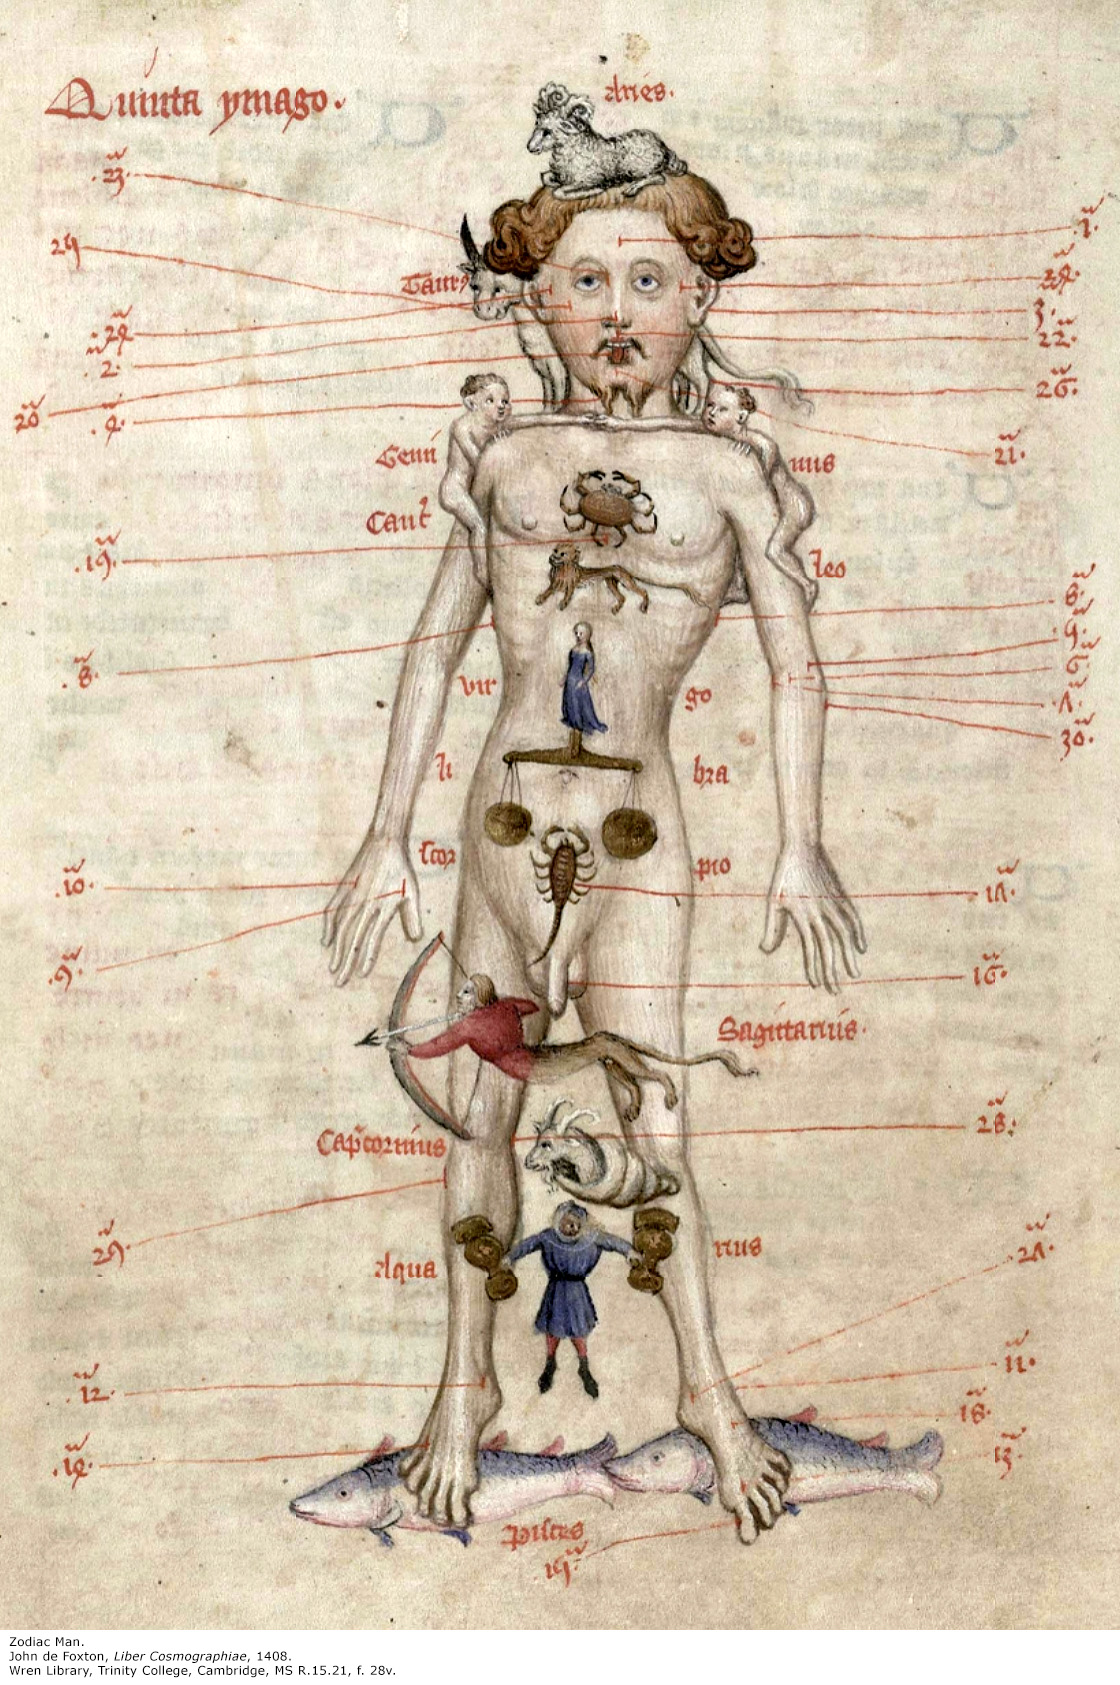 Quinta ymago.
Aries.
23
1.
24
Taurꝰ
24
3.
22
2.
26.
20
4.
21.
Gemi
nus
Canc̄
19.
leo
8.
6.
8.
vir
go
7.
30.
li
bra
scor
pio
10.
17.
9.
16.
Sagittarius.
28.
Cap̄cornius
29.
Aqua
rius
27.
11.
12.
18.
14.
13.
Pisces
15.
Zodiac Man.
John de Foxton, Liber Cosmographiae, 1408.
Wren Library, Trinity College, Cambridge, MS R.15.21, f. 28v.